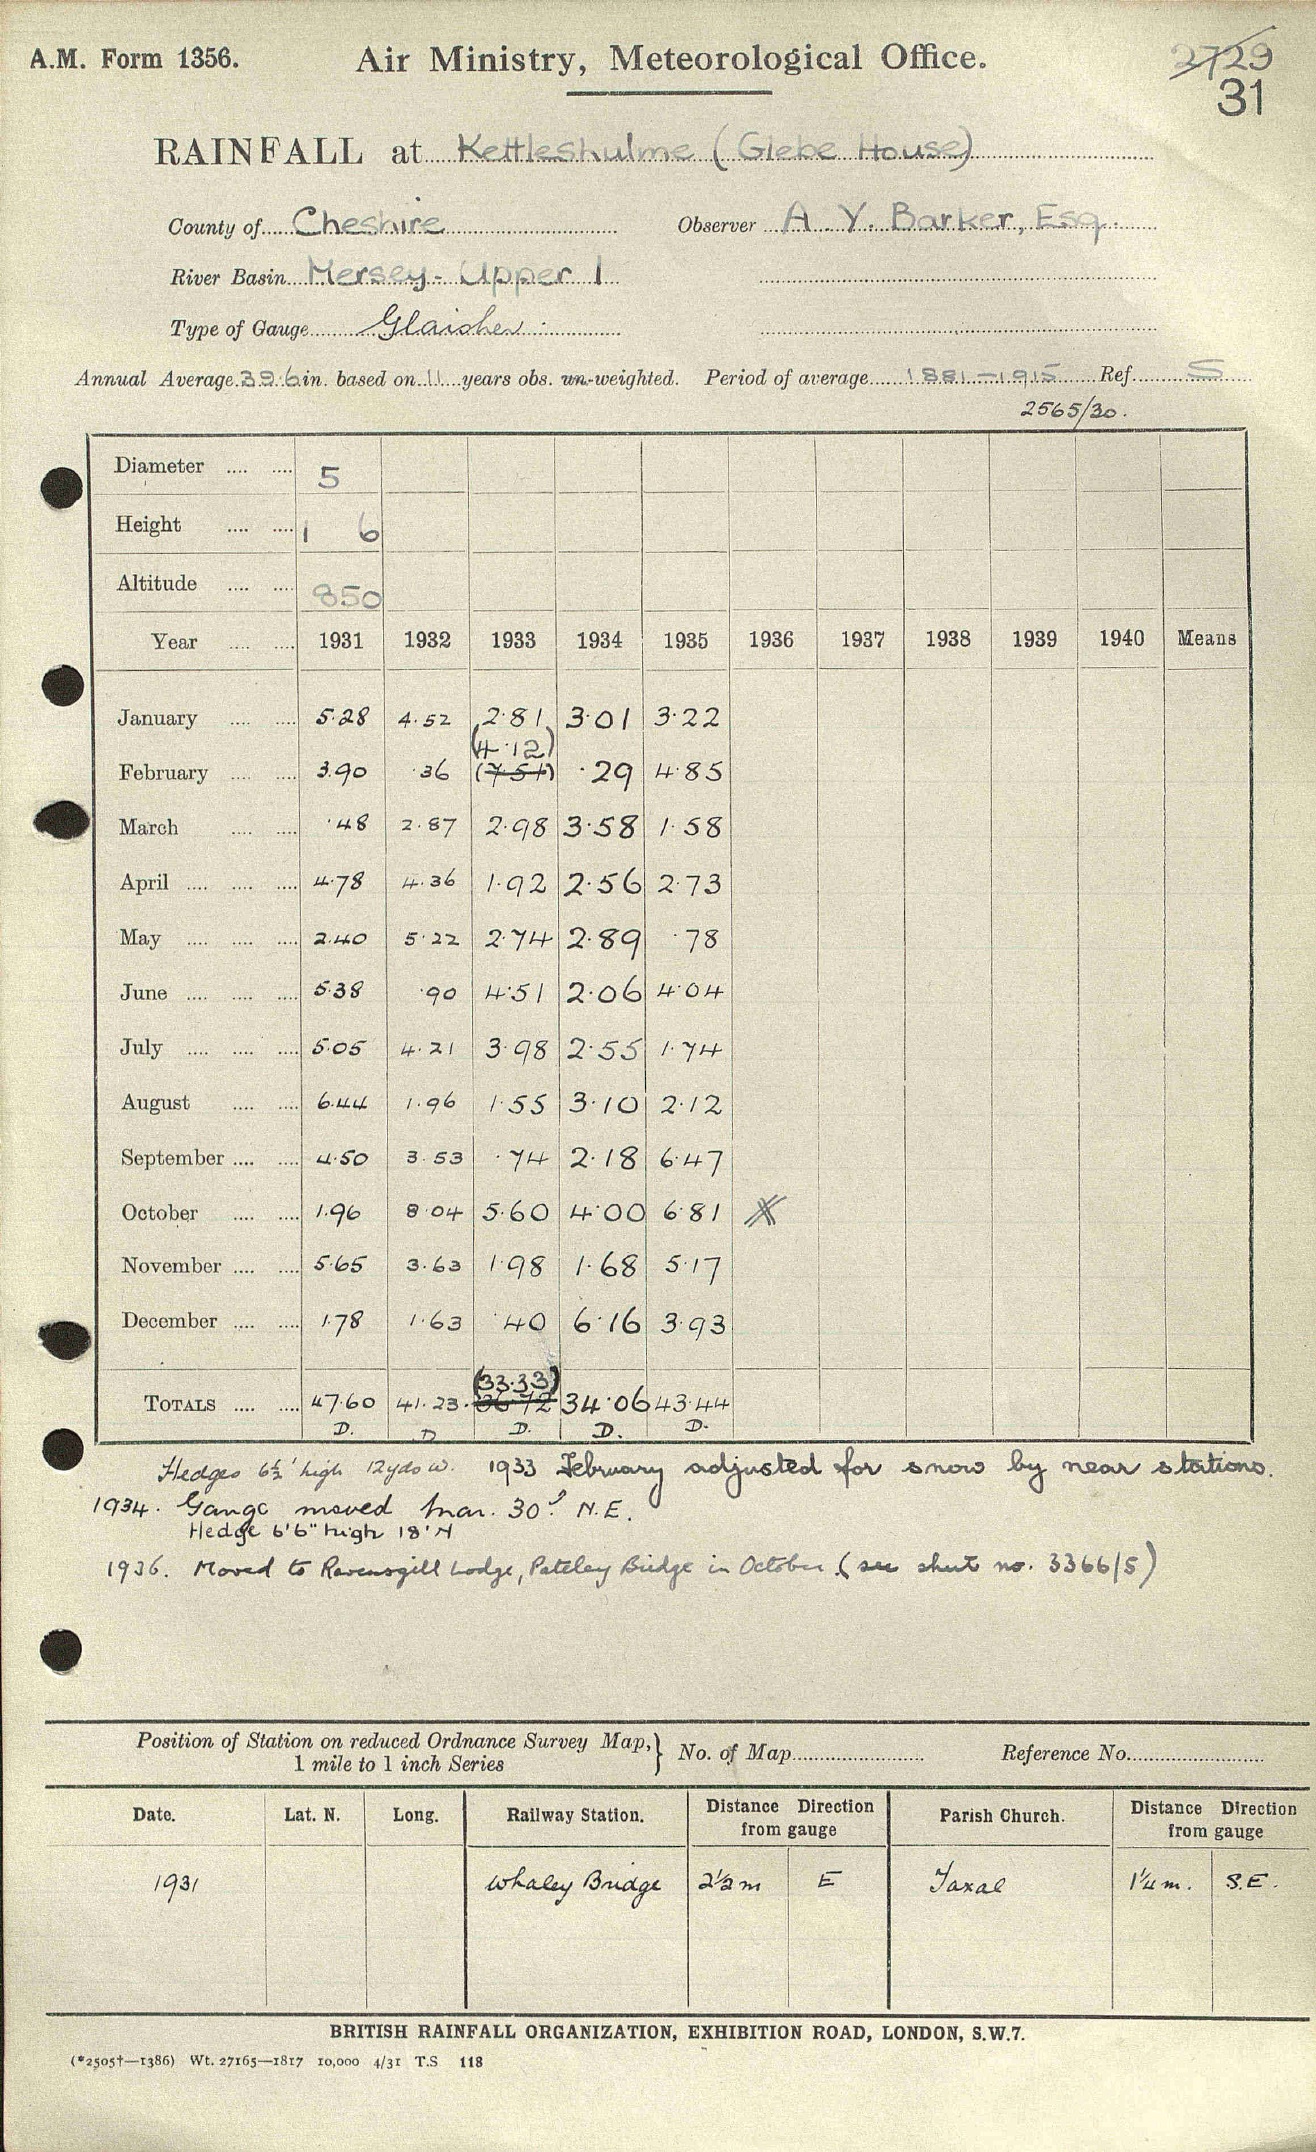 A.M. Form 1356.
Air Ministry, Meteorological Office.
2729
31
RAINFALL at Kettleshulme (Glebe House)
County of Cheshire Observer A. Y. Barker, Esq.
River Basin Mersey - Upper 1
Type of Gauge Glaisher
Annual Average 39.6 in. based on 11 years obs. un-weighted. Period of average 1881-1915 Ref. S
2565/30.
Diameter 5
Height 1 6
Altitude 850
Year 1931 1932 1933 1934 1935 1936 1937 1938 1939 1940 Means
January 5.28 4.52 2.81 3.01 3.22
(4.12)
February 3.90 .36 (7.51) .29 4.85
March .48 2.87 2.98 3.58 1.58
April 4.78 4.36 1.92 2.56 2.73
May 2.40 5.22 2.74 2.89 .78
June 5.38 .90 4.51 2.06 4.04
July 5.05 4.21 3.98 2.55 1.74
August 6.44 1.96 1.55 3.10 2.12
September 4.50 3.53 .74 2.18 6.47
October 1.96 8.04 5.60 4.00 6.81
November 5.65 3.63 1.98 1.68 5.17
December 1.78 1.63 .40 6.16 3.93
(33.33)
TOTALS 47.60 41.23 36.72 34.06 43.44
D. D D. D. D.
Hedges 6½' high 12yds W. 1933 February adjusted for snow by near stations.
1934. Gauge moved Mar. 30' N.E.
Hedge 6'6" high 18' N
1936. Moved to Ravensgill Lodge, Pateley Bridge in October. (see sheet no. 3366/5)
Position of Station on reduced Ordnance Survey Map,
1 mile to 1 inch Series } No. of Map Reference No.
Date. Lat. N. Long. Railway Station. Distance Direction from gauge Parish Church. Distance Direction from gauge
1931 Whaley Bridge 2½m E Taxal 1¼m. S.E.
BRITISH RAINFALL ORGANIZATION, EXHIBITION ROAD, LONDON, S.W.7.
(*2505†—1386) Wt. 27165—1817 10,000 4/31 T.S 118